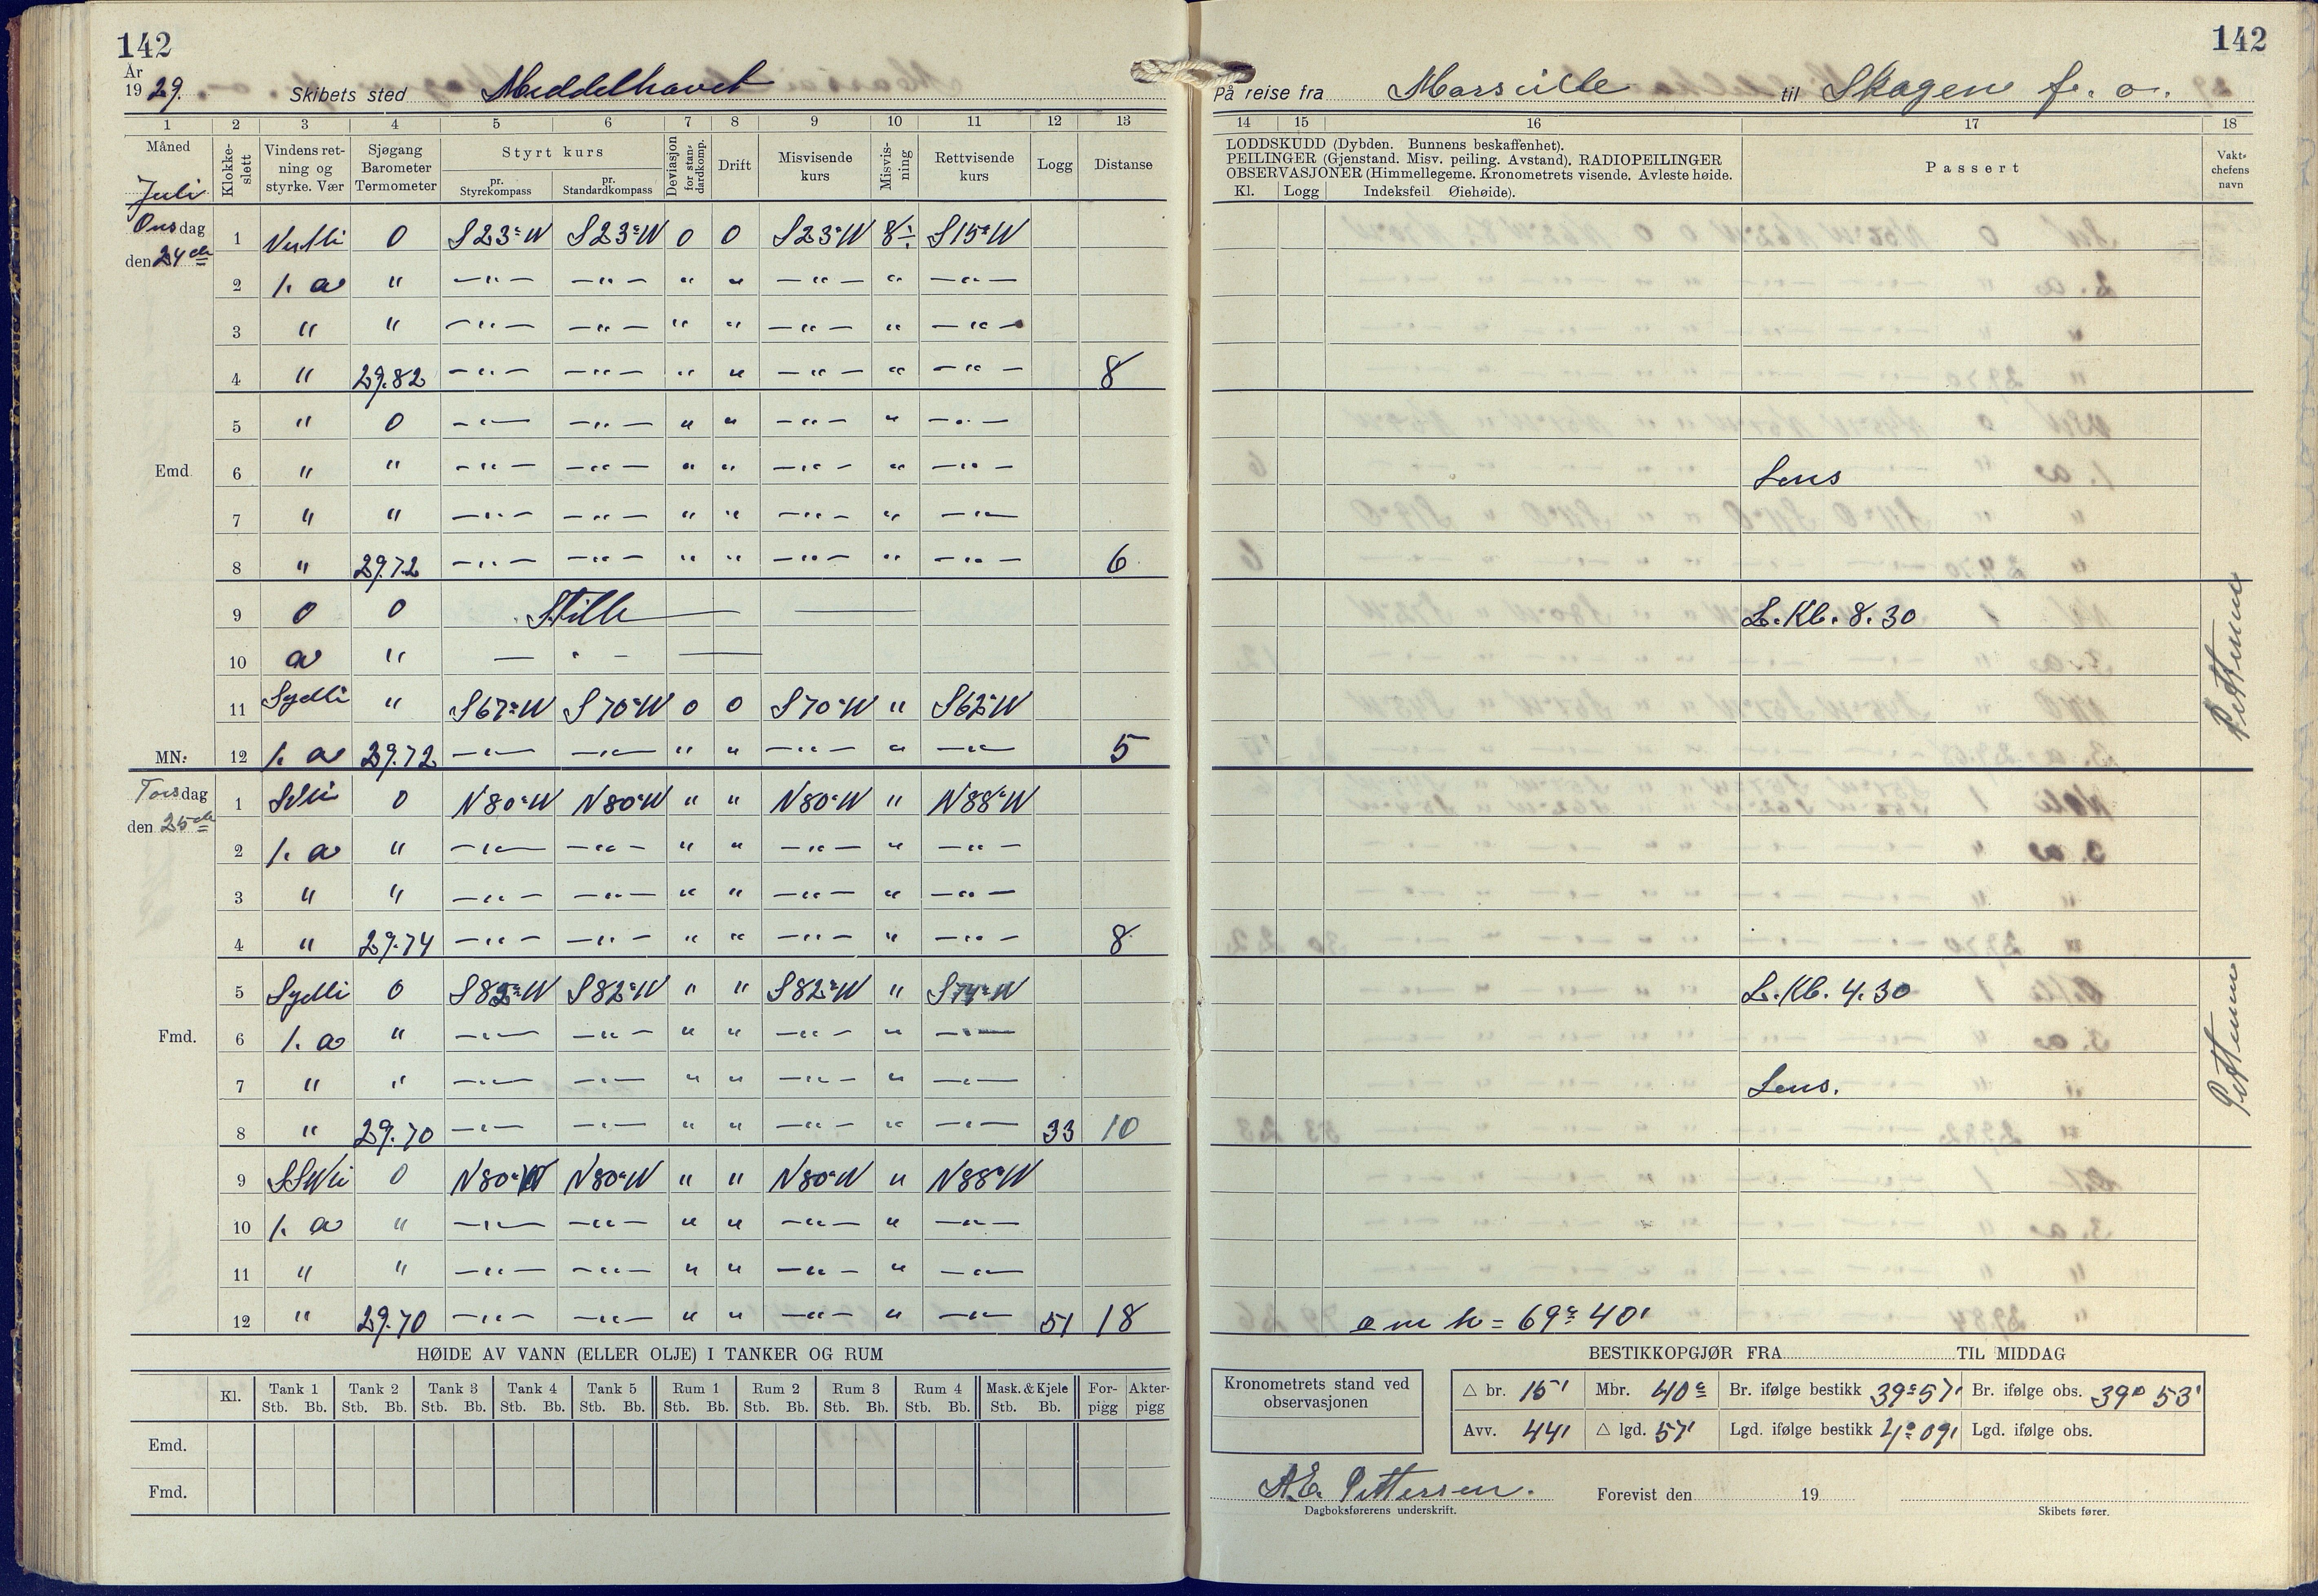 142
År
19 29. Skibets sted Middelhavet
1 2 3 4 5 6 7 8 9 10 11 12 13
Måned Klokke-slett Vindens ret-ning og styrke. Vær Sjøgang Barometer Termometer Styrt kurs pr. Styrekompass pr. Standardkompass Deviasjon for stan-dardkomp. Drift Misvisende kurs Misvis-ning Rettvisende kurs Logg Distanse
Juli
Onsdag 1 Vestli 0 S23°W S23°W 0 0 S23°W 8÷ S15°W
den 24de 2 1. a " —"— —"— " " —"— " —"—
3 " " —"— —"— " " —"— " —"—
4 " 29.82 —"— —"— " " —"— " —"— 8
5 " 0 —"— —"— " " —"— " —"—
Emd. 6 " " —"— —"— " " —"— " —"—
7 " " —"— —"— " " —"— " —"—
8 " 29.72 —"— —"— " " —"— " —"— 6
9 0 0 Stille
10 a " — " —
11 Sydli " S67°W S70°W 0 0 S70°W " S62°W
MN. 12 1. a 29.72 —"— —"— " " —"— " —"— 5
Torsdag 1 0 N80°W N80°W " " N80°W " N88°W
den 25de 2 1. a " —"— —"— " " —"— " —"—
3 " " —"— —"— " " —"— " —"—
4 " 29.74 —"— —"— " " —"— " —"— 8
5 Sydli 0 S82°W S82°W " " S82°W " S74°W
Fmd. 6 1. a " —"— —"— " " —"— " —"—
7 " " —"— —"— " " —"— " —"—
8 " 29.70 —"— —"— " " —"— " —"— 33 10
9 SSWli 0 N80°W N80°W " " N80°W " N88°W
10 1. a " —"— —"— " " —"— " —"—
11 " " —"— —"— " " —"— " —"—
12 " 29.70 —"— —"— " " —"— " —"— 51 18
HØIDE AV VANN (ELLER OLJE) I TANKER OG RUM
Kl. Tank 1 Tank 2 Tank 3 Tank 4 Tank 5 Rum 1 Rum 2 Rum 3 Rum 4 Mask. & Kjele For-pigg Akter-pigg
Stb. Bb. Stb. Bb. Stb. Bb. Stb. Bb. Stb. Bb. Stb. Bb. Stb. Bb. Stb. Bb. Stb. Bb. Stb. Bb.
Emd.
Fmd.
142
På reise fra Marseille til Skagen f. o.
14 15 16 17 18
LODDSKUDD (Dybden. Bunnens beskaffenhet).
PEILINGER (Gjenstand. Misv. peiling. Avstand). RADIOPEILINGER
OBSERVASJONER (Himmellegeme. Kronometrets visende. Avleste høide.
Kl. Logg Indeksfeil Øiehøide).
Passert
Vakt-chefens navn
Lens
L. Kl. 8.30
Pettersen
L. Kl. 4.30
Lens.
Pettersen
m h = 69° 40'
BESTIKKOPGJØR FRA TIL MIDDAG
Kronometrets stand ved observasjonen
△ br. 15' Mbr. 40° Br. ifølge bestikk 39° 57' Br. ifølge obs. 39° 53'
Avv. 44' △ lgd. 57' Lgd. ifølge bestikk 4° 09' Lgd. ifølge obs.
A.E. Pettersen. Forevist den 19
Dagboksførerens underskrift. Skibets fører.